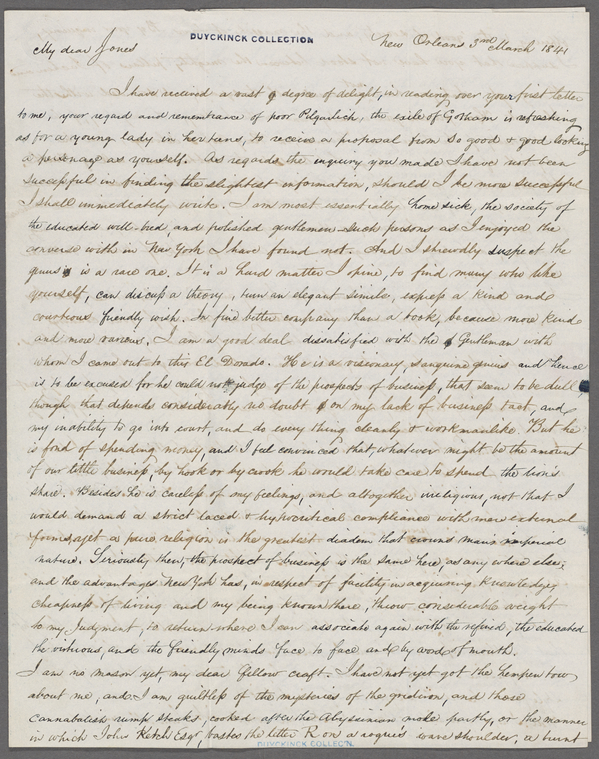 DUYCKINCK COLLECTION
New Orleans 3rd March 1841
My dear Jones
I have received a vast degree of delight, in reading over your first letter
to me; your regard and remembrance of poor Pilgarlick, the exile of Gotham is refreshing
as for a young lady in her teens, to receive a proposal from so good & good looking
a personage as yourself. As regards the inquiry you made I have not been
successful in finding the slightest information, should I be more successful
I shall immediately write. I am most essentially home sick, the society of
the educated well-bred, and polished gentlemen. Such persons as I enjoyed the
converse with in New York I have found not. And I shrewdly suspect the
genus is a rare one. It is a hard matter I opine, to find many who like
yourself, can discuss a theory, turn an elegant simile, express a kind and
courteous friendly wish. In fine better company than a book, because more kind
and more various. I am a good deal dissatisfied with the Gentleman with
whom I came out to this El Dorado. He is a visionary, sanguine genius and hence
is to be excused for he could not judge of the prospects of business, that seem to be dull
though that depends considerably no doubt on my lack of business tact, and
my inability to go into court, and do every thing cleanly & workmanlike. But he
is fond of spending money, and I feel convinced that whatever might be the amount
of our little business, by hook or by crook he would take care to spend the lion's
share. Besides he is careless of my feelings, and altogether irreligious, not that I
would demand a strict laced & hypocritical compliance with mere external
forms, yet a pure religion is the greatest diadem that crowns man's imperial
nature. Seriously then, the prospect of business is the same here, as any where else,
and the advantages New York has, in respect of facility in acquiring knowledge,
cheapness of living and my being known there, throw considerable weight
to my judgment, to return where I can associate again with the refined, the educated
the virtuous, and the friendly minds face to face and by word of mouth.
I am no mason yet, my dear fellow craft. I have not yet got the hempen tow
about me, and I am guiltless of the mysteries of the gridiron, and those
cannabalish rump steaks, cooked after the Abyssinian mode partly, or the manner
in which John Ketch Esqr, bastes the letter R on a rogue's ware shoulder, a burnt
DUYCKINCK COLLEC'N.